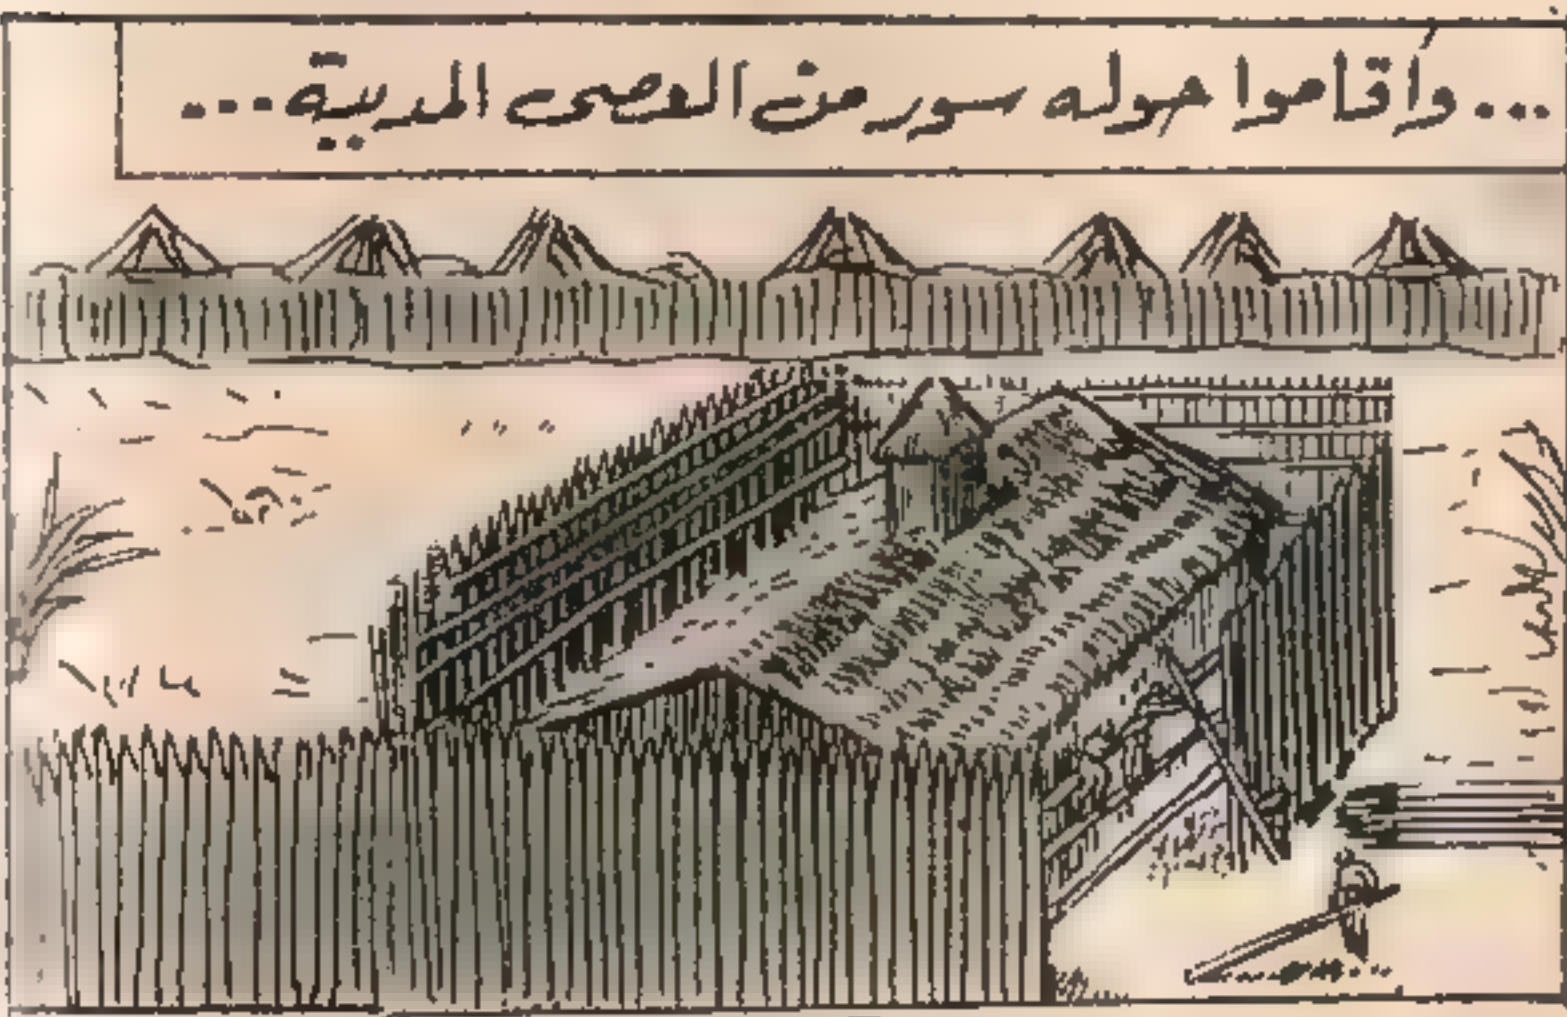 ... وأقاموا حوله سور من العصى المدببة ...